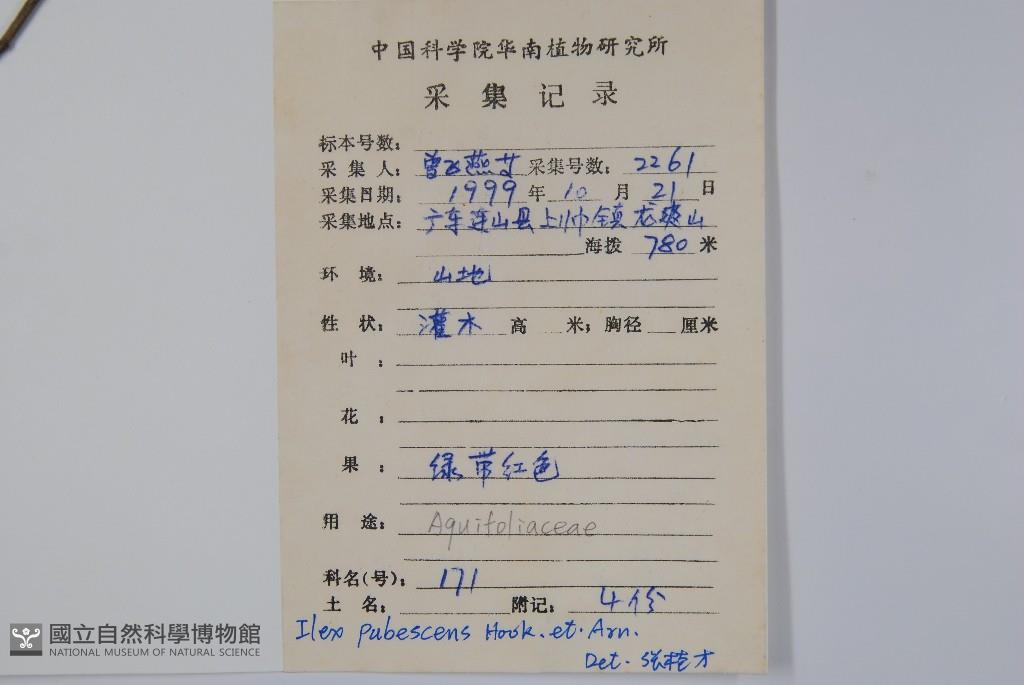 中国科学院华南植物研究所
采集记录
标本号数：
采集人：曾飞燕 采集号数：2261
采集日期：1999年10月21日
采集地点：广东连山县上帅镇
海拨 780 米
环境：山地
性状：灌木 高 米；胸径 厘米
叶：
花：
果：绿带红色
用途：Aquifoliaceae
科名(号)：171
土名： 附记：4份
Ilex pubescens Hook. et. Arn.
Det.
國立自然科學博物館
NATIONAL MUSEUM OF NATURAL SCIENCE